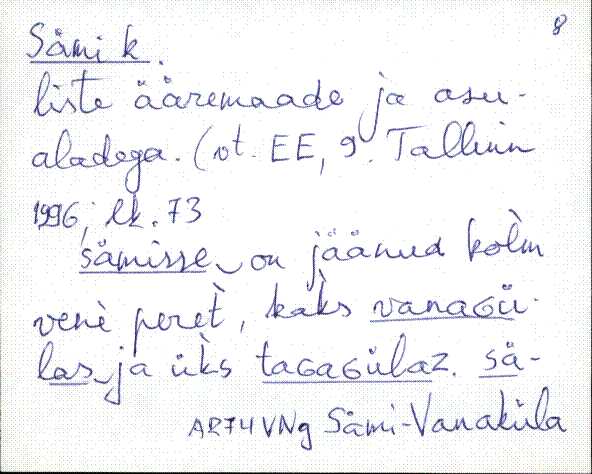 8
Sämi k.
liste ääremaade ja asu-
aladega. (vt. EE, 9. Tallinn
1996, lk. 73
sämisse on jäänud kol̀m
venè peret̀, kàks vanaɢü-
las ja ük̀s taɢaɢülaz. sä-
AR74VNg Sämi-Vanaküla